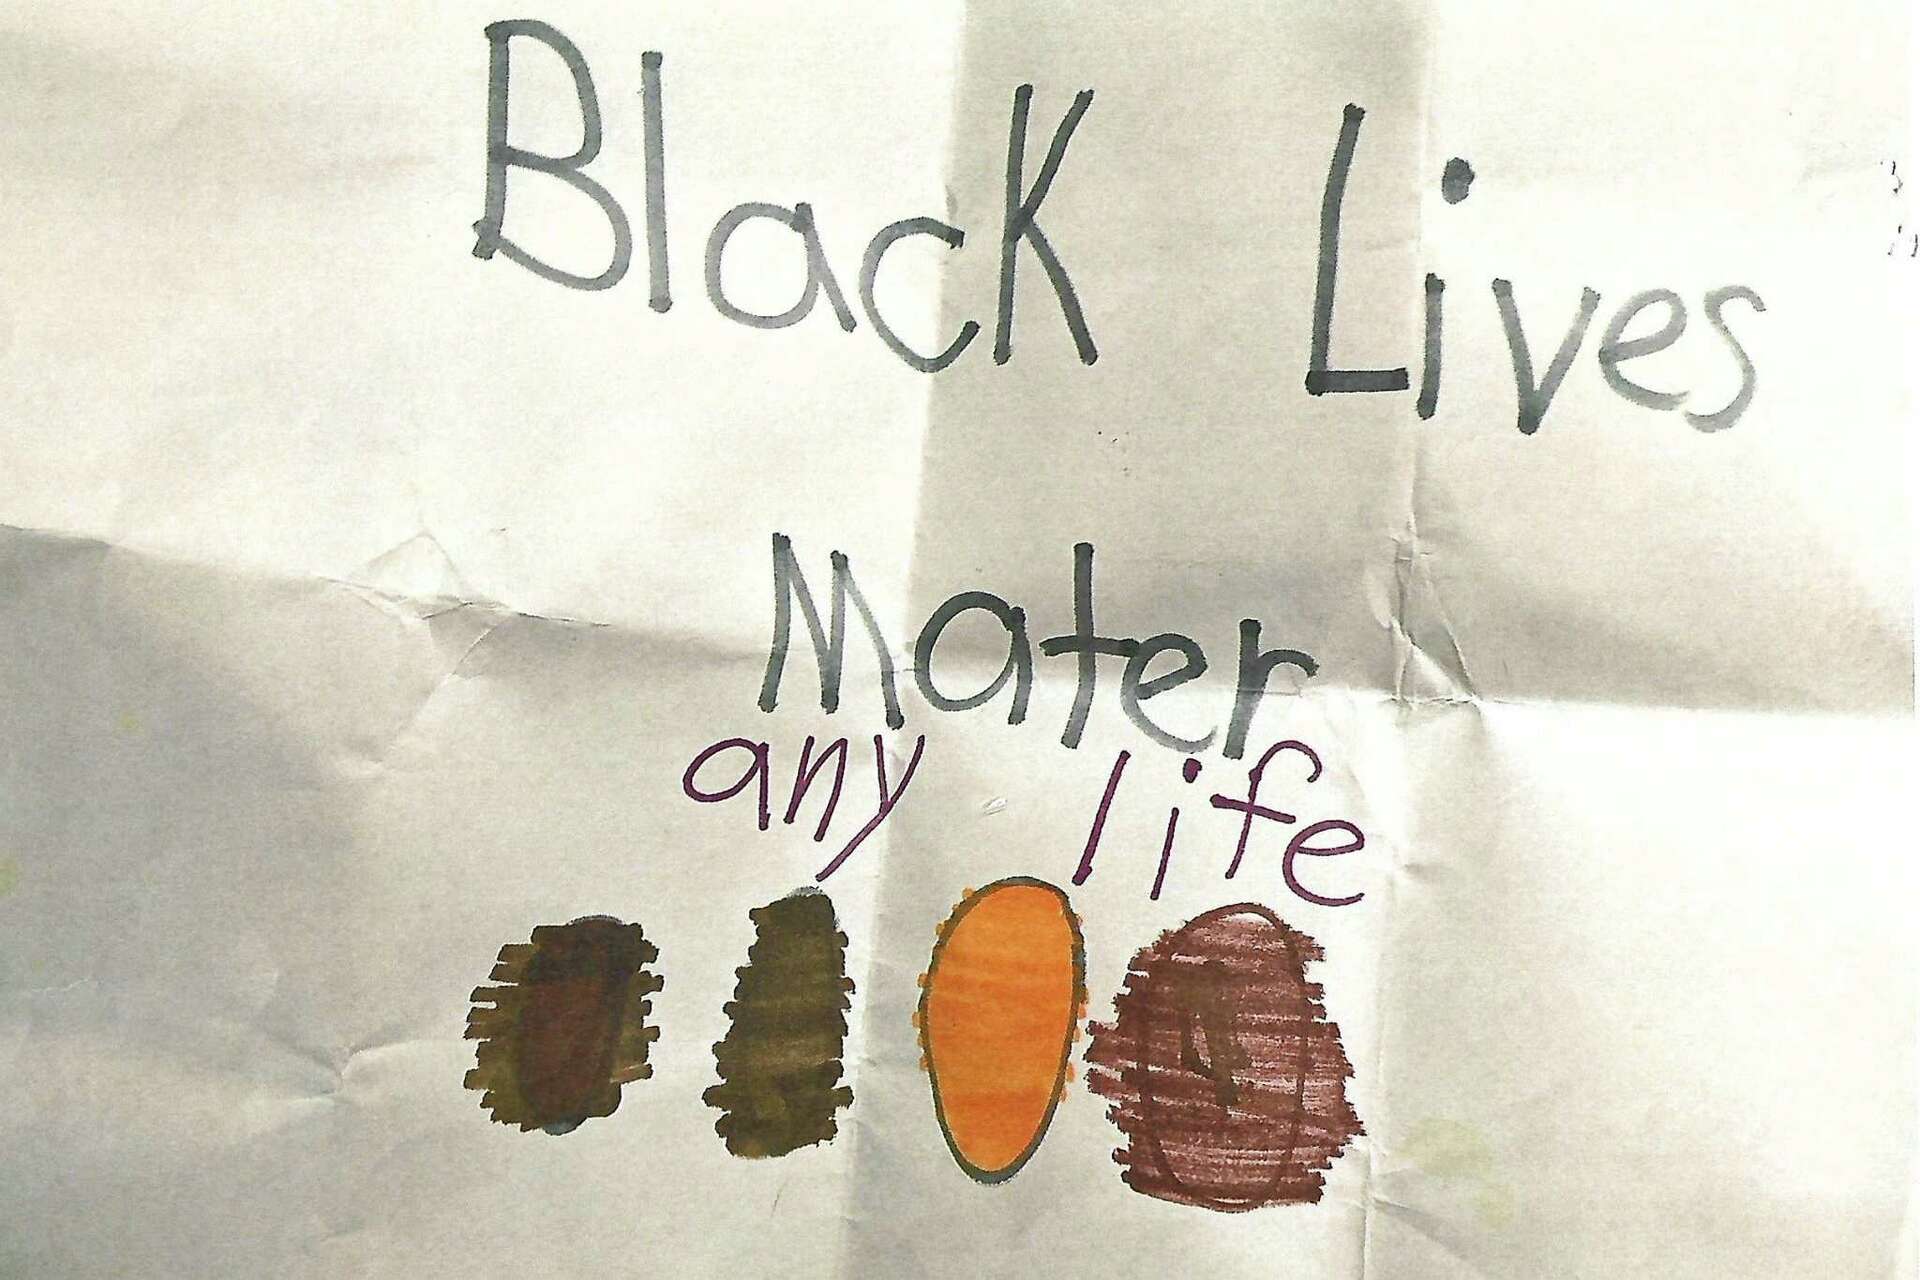 Black Lives
Mater
any life